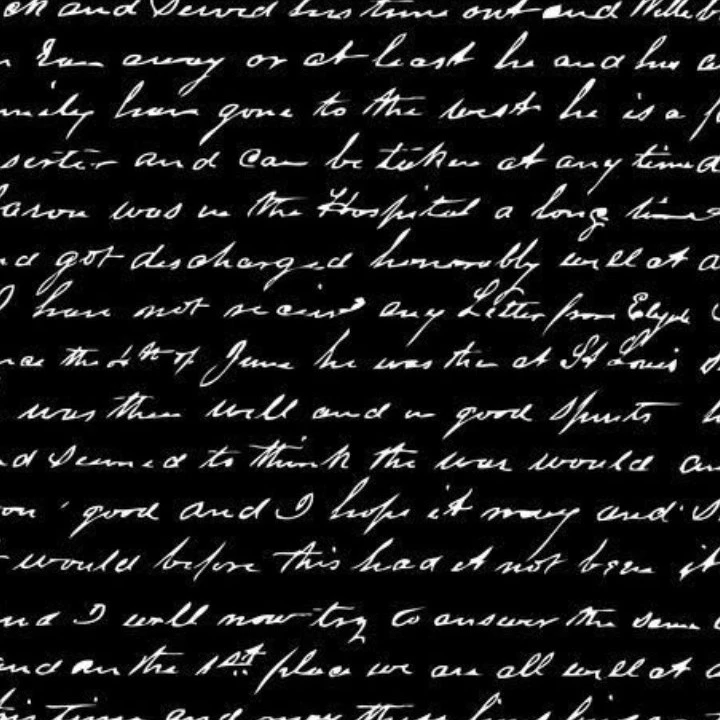 and Served his time out and
I am away or at least he and has
family have gone to the west he is a
sister and can be taken at any time
was in the Hospital a long time
got discharged honorably well at
I have not received any Letter from
the 4th of June he was then at St Louis
was then well and in good Spirits
and Seemed to think the war would
good and I hope it may and
would before this had it not been it
and I will now try to answer the same
and in the 1st place we are all well at
this time and may these lines